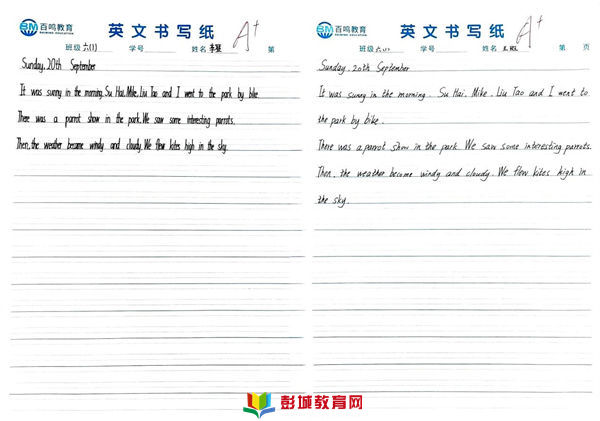 百鸣教育
BM
英文书写纸
A+
班级 六(1) 学号 姓名 第
Sunday, 20th September
It was sunny in the morning. Su Hai, Mike, Liu Tao and I went to the park by bike.
There was a parrot show in the park. We saw some interesting parrots.
Then, the weather became windy and cloudy. We flew kites high in the sky.
百鸣教育
BM
英文书写纸
A+
班级 六(1) 学号 姓名 第 页
Sunday, 20th September
It was sunny in the morning. Su Hai, Mike, Liu Tao and I went to
the park by bike.
There was a parrot show in the park. We saw some interesting parrots.
Then, the weather become windy and cloudy. We flew kites high in
the sky.
彭城教育网